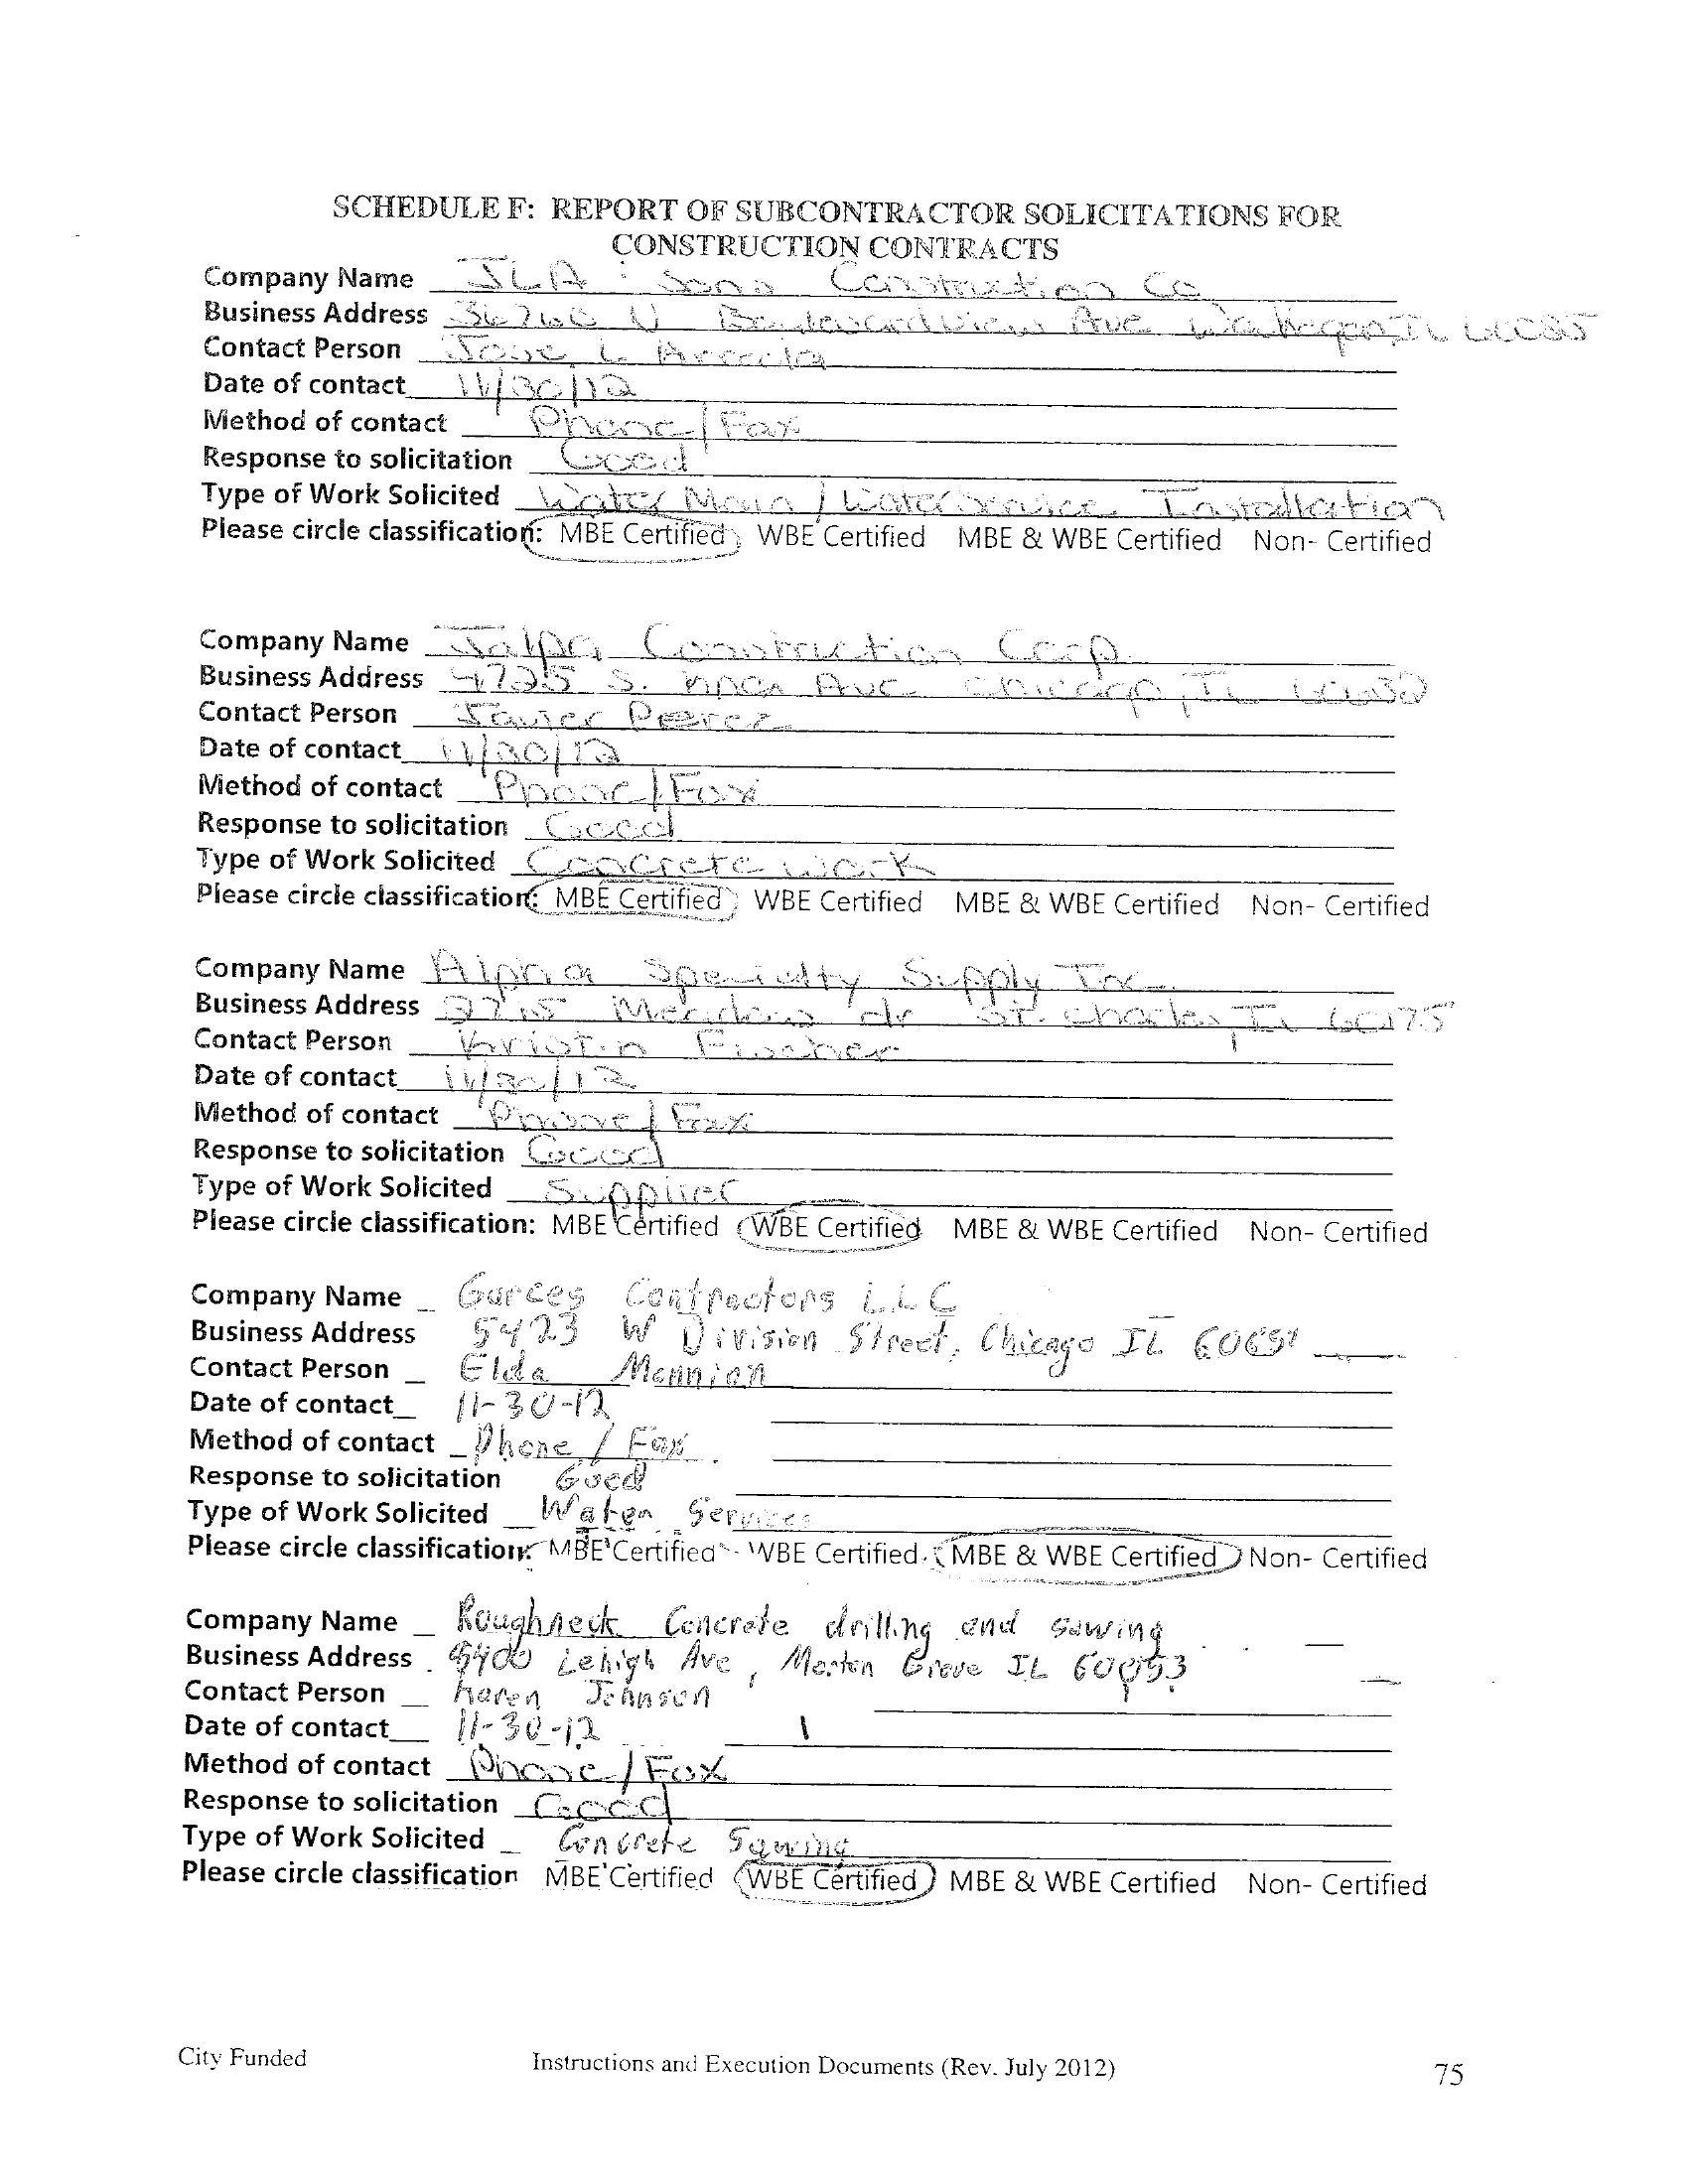 SCHEDULE F: REPORT OF SUBCONTRACTOR SOLICITATIONS FOR
CONSTRUCTION CONTRACTS
Company Name JLA Sons Construction Co
Business Address N Ave IL
Contact Person Jose L
Date of contact 11/30/12
Method of contact Phone/Fax
Response to solicitation Good
Type of Work Solicited Water Main / Water Service Installation
Please circle classification: MBE Certified WBE Certified MBE & WBE Certified Non- Certified
Company Name Jalpa Construction Corp.
Business Address 4725 S. Ave Chicago, IL
Contact Person Javier
Date of contact 11/30/12
Method of contact Phone/Fax
Response to solicitation Good
Type of Work Solicited Concrete Work
Please circle classification: MBE Certified WBE Certified MBE & WBE Certified Non- Certified
Company Name Alpha Specialty Supply Inc.
Business Address dr St. Charles, IL 60175
Contact Person Kristin Fischer
Date of contact 11/30/12
Method of contact Phone/Fax
Response to solicitation Good
Type of Work Solicited Supplier
Please circle classification: MBE Certified WBE Certified MBE & WBE Certified Non- Certified
Company Name Garces Contractors LLC
Business Address 5423 W Division Street, Chicago IL 60651
Contact Person Elda
Date of contact 11-30-12
Method of contact Phone / Fax
Response to solicitation Good
Type of Work Solicited Water Services
Please circle classification: MBE Certified WBE Certified MBE & WBE Certified Non- Certified
Company Name Roughneck Concrete drilling and sawing
Business Address 8400 Lehigh Ave, Morton Grove IL 60053
Contact Person Karen Johnson
Date of contact 11-30-12
Method of contact Phone/Fax
Response to solicitation Good
Type of Work Solicited Concrete Sawing
Please circle classification MBE Certified WBE Certified MBE & WBE Certified Non- Certified
City Funded Instructions and Execution Documents (Rev. July 2012) 75